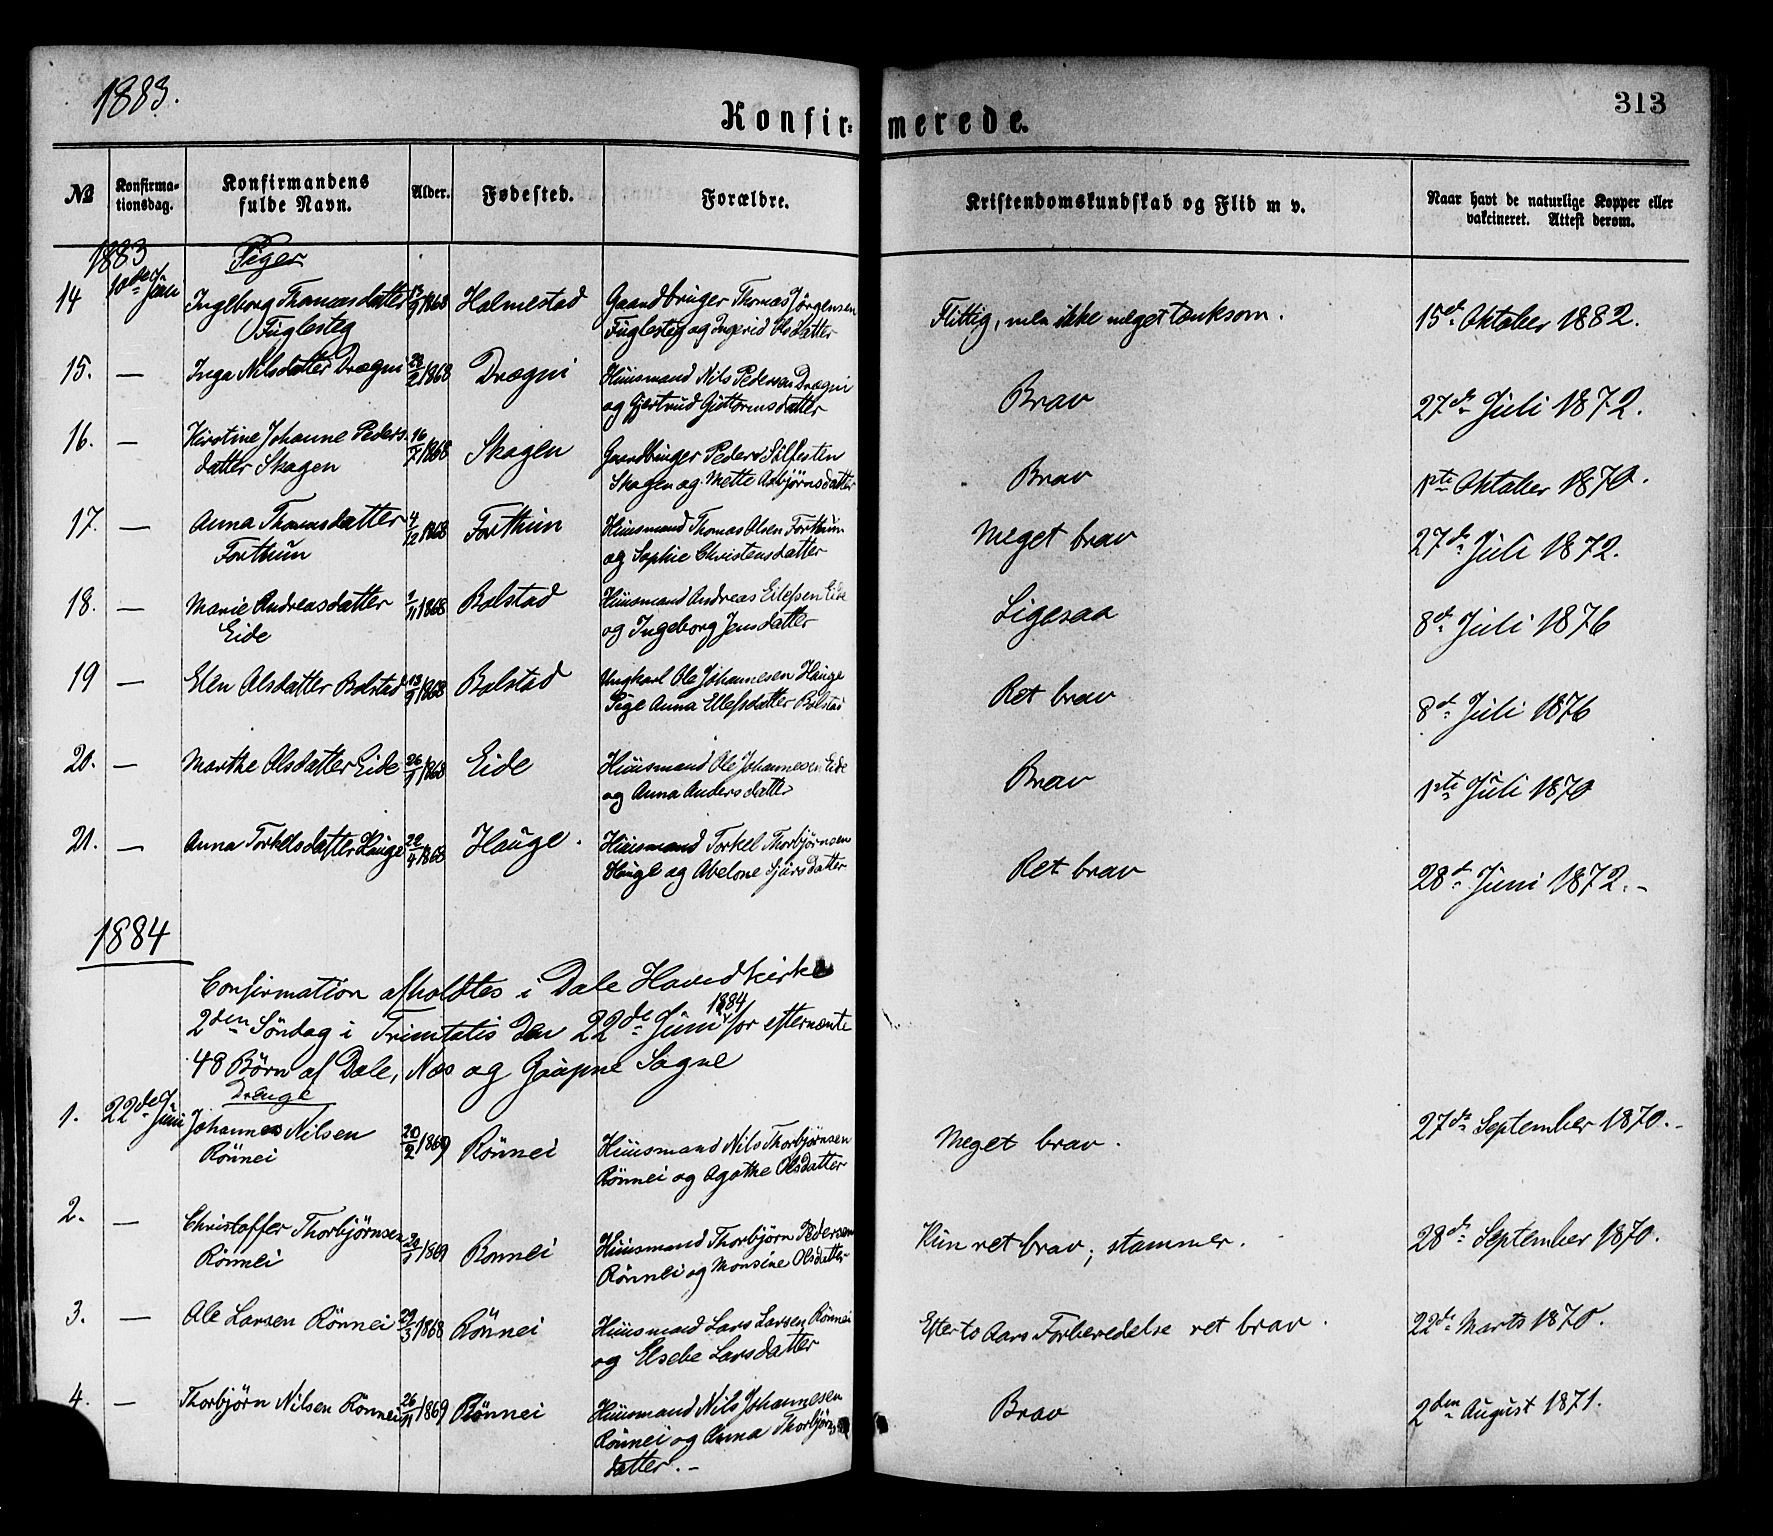 1883.
Konfirmerede.
313
№ Konfirmationsdag. Konfirmandens fulde Navn. Alder. Fødested. Forældre. Kristendomskundskab og Flid m v. Naar havt de naturlige Kopper eller vakcineret. Attest derom.
1883 Piger
14 10de Juni Ingeborg Thomasdatter 13/9 1868 Halmestad Gaardbruger Thomas Jørgensen Flittig, men ikke meget tænksom. 15de Oktober 1882.
Fuglesteg Fuglesteg og Ingerid Olsdatter
15. — Inga Nilsdatter Drægni 23/2 1868 Drægni Huusmand Nils Pedersen Drægni Brav 27de Juli 1872.
og Gjertrud Guttormsdatter
16. — Kirstine Johanne Peders 16/7 1868 Skagen Gaardbruger Peder Sølfesten Brav 1ste Oktober 1870.
datter Skagen Skagen og Mette Asbjørnsdatter
17. — Anna Thomasdatter 4/12 1868 Forthun Huusmand Thomas Olsen Forthun Meget brav 27de Juli 1872.
Forthun og Sophie Christensdatter
18. — Marie Andreasdatter /11 1868 Bolstad Huusmand Andreas Eilefsen Eide Ligesaa 8de Juli 1876
Eide og Ingeborg Jensdatter
19 — Elen Olsdatter Bolstad 13/ 1868 Bolstad Ungkarl Ole Johannesen Hauge Ret brav 8de Juli 1876
Pige Anna Ellefsdatter Bolstad
20. — Marthe Olsdatter Eide 26/ 1868 Eide Huusmand Ole Johannesen Eide Brav 1ste Juli 1870
og Anna Andersdatter
21. — Anna Torkelsdatter Hauge 22/4 1868 Hauge. Huusmand Torkel Thorbjørnsen Ret brav 28de Juni 1872.-
Hauge og Abelone Sjursdatter
1884
Confirmation afholdtes i Dale Hovedkirke
2den Söndag i Trinitatis den 22de Juni 1884 for efternævnte
48 Børn af Dale, Næs og Gaupne Sogne
Drenge
1. 22de Juni Johannes Nilsen 20/2 1869 Rönnei Huusmand Nils Thorbjørnsen Meget brav. 27de September 1870.-
Rönnei Rönnei og Agathe Olsdatter
2. — Christoffer Thorbjørnsen 20/ 1869 Ronnei Huusmand Thorbjørn Pedersen Kun ret brav; stammer. 28de September 1870.
Rönnei Rönnei og Monsine Olsdatter
3. — Ole Larsen Rönnei 29/3 1868 Rönnei Huusmand Lars Larsen Rönnei Efter to Aars Forberedelse ret brav. 22de Marts 1870.
og Elsebe Larsdatter
4. — Thorbjørn Nilsen Rönnei 26/11 1869 Rönnei Huusmand Nils Johannesen Brav 2den August 1871.
Rönnei og Anna Thorbjørns
datter.-